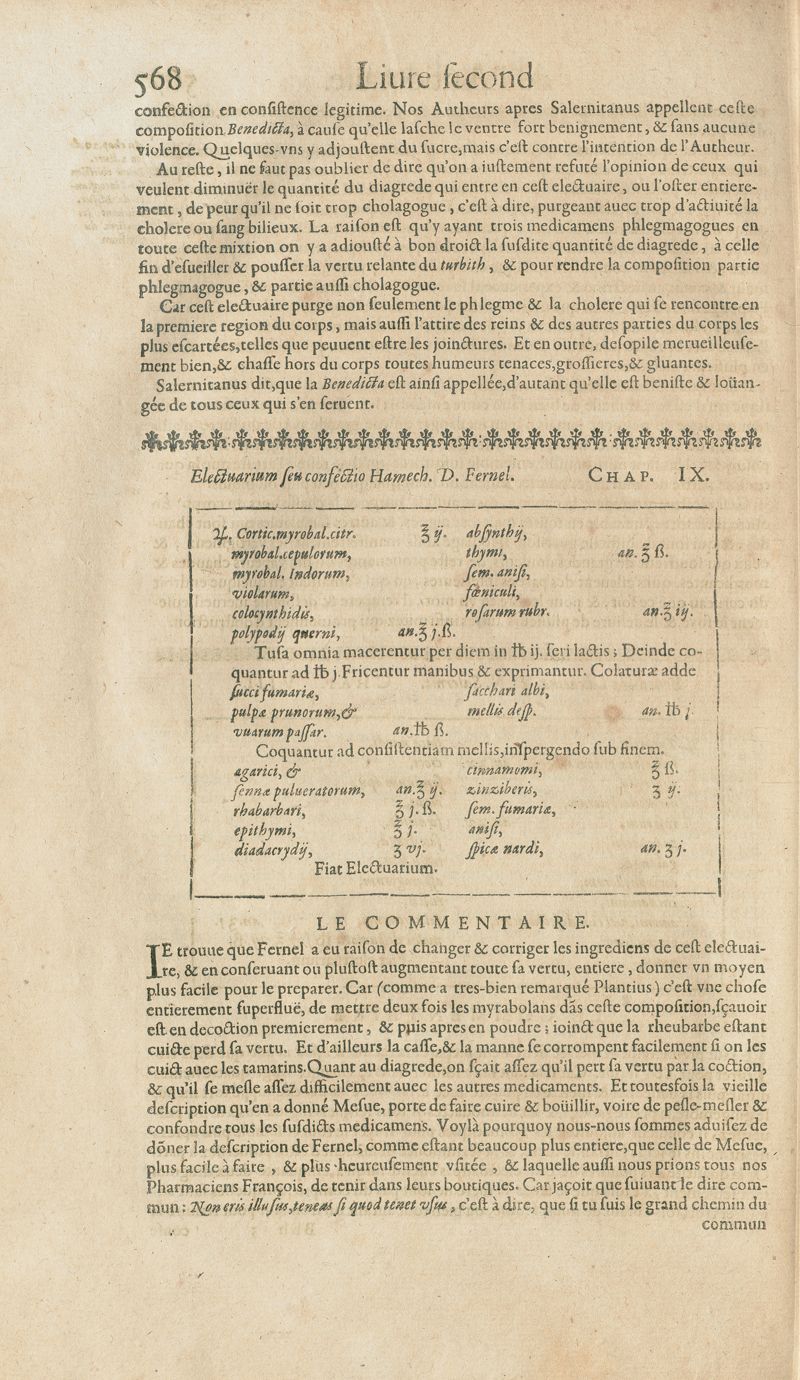 568 Liure ſecond
confection en conſiſtence legitime. Nos Autheurs apres Salernitanus appellent ceſte
compoſition Benedicta, à cauſe qu'elle laſche le ventre fort benignement, & ſans aucune
violence. Quelques-vns y adjouſtent du ſucre,mais c'eſt contre l'intention de l'Autheur.
Au reſte, il ne faut pas oublier de dire qu'on a iuſtement refuté l'opinion de ceux qui
veulent diminuër le quantité du diagrede qui entre en ceſt electuaire, ou l'oſter entiere-
ment, de peur qu'il ne ſoit trop cholagogue, c'eſt à dire, purgeant auec trop d'actiuité la
cholere ou ſang bilieux. La raiſon eſt qu'y ayant trois medicamens phlegmagogues en
toute ceſte mixtion on y a adiouſté à bon droict la ſuſdite quantité de diagrede, à celle
fin d'eſueiller & pouſſer la vertu relante du turbith, & pour rendre la compoſition partie
phlegmagogue, & partie auſſi cholagogue.
Car ceſt electuaire purge non ſeulement le phlegme & la cholere qui ſe rencontre en
la premiere region du corps, mais auſſi l'attire des reins & des autres parties du corps les
plus eſcartées,telles que peuuent eſtre les joinctures. Et en outre, deſopile merueilleuſe-
ment bien,& chaſſe hors du corps toutes humeurs tenaces,groſſieres,& gluantes.
Salernitanus dit,que la Benedicta eſt ainſi appellée,d'autant qu'elle eſt beniſte & loüan-
gée de tous ceux qui s'en ſeruent.
Electuarium ſeu confectio Hamech. D. Fernel. CHAP. IX.
♃. Cortic.myrobal.citr. ℥ ij. abſynthij,
myrobal.cepulorum, thymi, an. ℥ ß.
myrobal. Indorum, ſem. aniſi,
violarum, fœniculi,
colocynthidis, roſarum rubr. an.℥ iij.
polypodij querni, an.℥ j.ß.
Tuſa omnia macerentur per diem in ℔ ij. ſeri lactis; Deinde co-
quantur ad ℔ j.Fricentur manibus & exprimantur. Colaturæ adde
ſucci fumariæ, ſacchari albi,
pulpæ prunorum,& mellis deſp. an. ℔ j.
vuarum paſſar. an.℔ ß.
Coquantur ad conſiſtentiam mellis,inſpergendo ſub finem.
agarici, & cinnamomi, ℥ ß.
ſennæ pulueratorum, an.℥ ij. zinziberis, ʒ ij.
rhabarbari, ℥ j.ß. ſem. fumariæ,
epithymi, ℥ j. aniſi,
diadacrydij, ʒ vj. ſpicæ nardi, an. ʒ j.
Fiat Electuarium.
LE COMMENTAIRE.
IE trouue que Fernel a eu raiſon de changer & corriger les ingrediens de ceſt electuai-
re, & en conſeruant ou pluſtoſt augmentant toute ſa vertu, entiere, donner vn moyen
plus facile pour le preparer. Car (comme a tres-bien remarqué Plantius) c'eſt vne choſe
entierement ſuperfluë, de mettre deux fois les myrabolans dãs ceſte compoſition,ſçauoir
eſt en decoction premierement, & puis apres en poudre; ioinct que la rheubarbe eſtant
cuicte perd ſa vertu. Et d'ailleurs la caſſe,& la manne ſe corrompent facilement ſi on les
cuict auec les tamarins.Quant au diagrede,on ſçait aſſez qu'il pert ſa vertu par la coction,
& qu'il ſe meſle aſſez difficilement auec les autres medicaments. Et toutesfois la vieille
deſcription qu'en a donné Meſue, porte de faire cuire & boüillir, voire de peſle-meſler &
confondre tous les ſuſdicts medicamens. Voylà pourquoy nous-nous ſommes aduiſez de
dõner la deſcription de Fernel, comme eſtant beaucoup plus entiere,que celle de Meſue,
plus facile à faire, & plus heureuſement vſitée, & laquelle auſſi nous prions tous nos
Pharmaciens François, de tenir dans leurs boutiques. Car jaçoit que ſuiuant le dire com-
mun: Non eris illuſus,teneas ſi quod tenet vſus, c'eſt à dire, que ſi tu ſuis le grand chemin du
commun